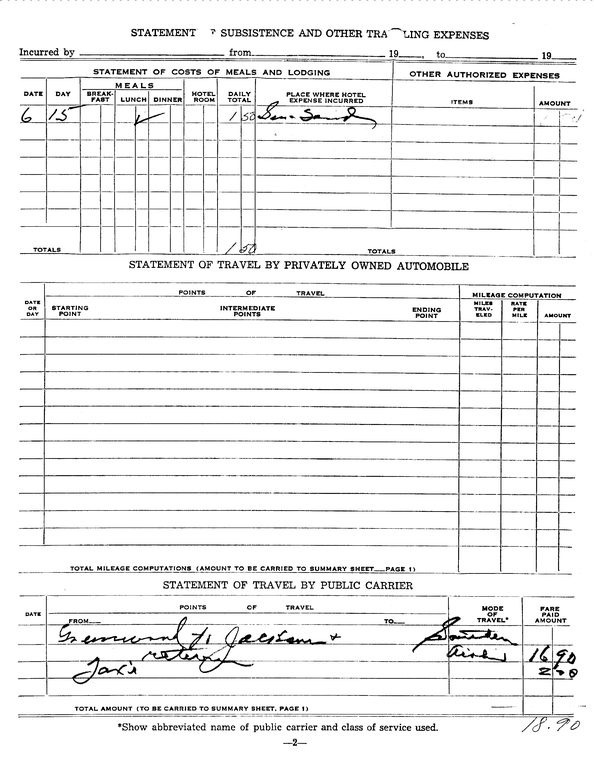 STATEMENT SUBSISTENCE AND OTHER TRA LING EXPENSES
Incurred by from 19 , to 19
STATEMENT OF COSTS OF MEALS AND LODGING OTHER AUTHORIZED EXPENSES
DATE DAY MEALS BREAK-FAST LUNCH DINNER HOTEL ROOM DAILY TOTAL PLACE WHERE HOTEL EXPENSE INCURRED ITEMS AMOUNT
6 15 ✓ 1 50
TOTALS 1 50 TOTALS
STATEMENT OF TRAVEL BY PRIVATELY OWNED AUTOMOBILE
POINTS OF TRAVEL MILEAGE COMPUTATION
DATE OR DAY STARTING POINT INTERMEDIATE POINTS ENDING POINT MILES TRAV-ELED RATE PER MILE AMOUNT
TOTAL MILEAGE COMPUTATIONS (AMOUNT TO BE CARRIED TO SUMMARY SHEET PAGE 1)
STATEMENT OF TRAVEL BY PUBLIC CARRIER
DATE POINTS OF TRAVEL MODE OF TRAVEL* FARE PAID AMOUNT
FROM TO
Greenwood to Jackson + Southern
return Airl 16 90
Taxi 2 00
TOTAL AMOUNT (TO BE CARRIED TO SUMMARY SHEET, PAGE 1)
18.90
*Show abbreviated name of public carrier and class of service used.
—2—